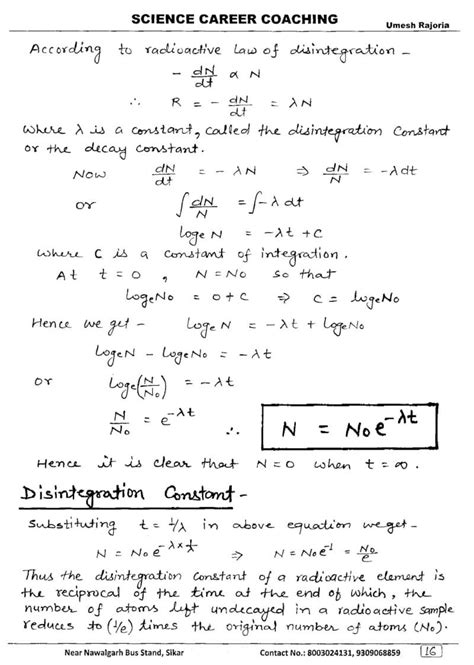 SCIENCE CAREER COACHING
Umesh Rajoria
According to radioactive law of disintegration -
- dN/dt ∝ N
∴ R = - dN/dt = λN
where λ is a constant, called the disintegration Constant
or the decay constant.
Now dN/dt = - λN ⇒ dN/N = -λdt
or ∫ dN/N = ∫-λ dt
logeN = -λt + C
where C is a constant of integration.
At t = 0 , N = No so that
logeNo = 0 + C ⇒ C = logeNo
Hence we get - logeN = -λt + logeNo
logeN - logeNo = -λt
or loge(N/No) = -λt
N/No = e^-λt ∴ N = No e^-λt
Hence it is clear that N = 0 when t = ∞.
Disintegration Constant -
Substituting t = 1/λ in above equation we get -
N = No e^-λ×1/λ ⇒ N = No e^-1 = No/e
Thus the disintegration constant of a radioactive element is
the reciprocal of the time at the end of which, the
number of atoms left undecayed in a radioactive sample
reduces to (1/e) times the original number of atoms (No).
Near Nawalgarh Bus Stand, Sikar Contact No.: 8003024131, 9309068859 16